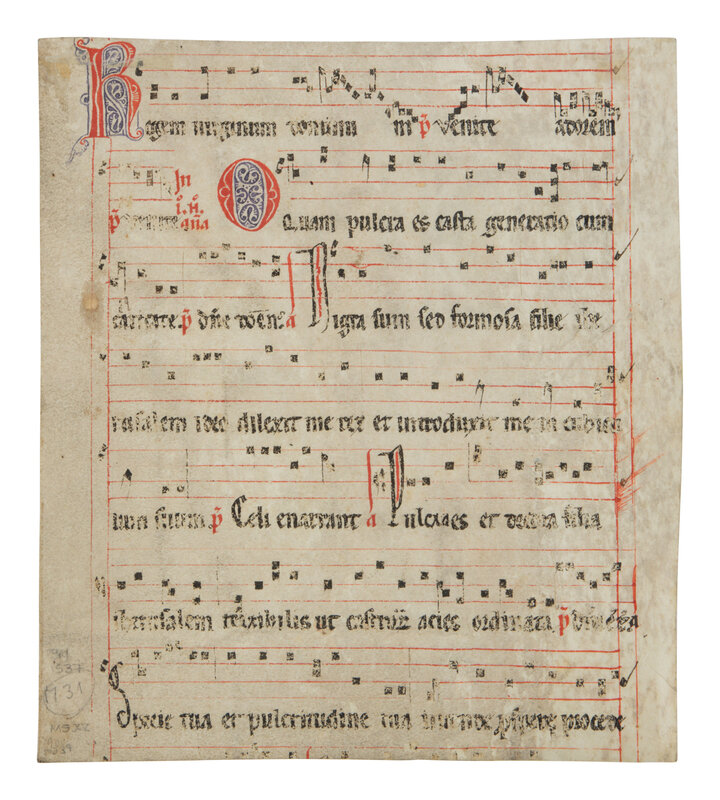 Regem uirginum dominum in p̄ Venite adorem̄
p̄ In i. N̄. an̄a O Quam pulcra es casta generatio cum
caritate. p̄ dn̄e a Nigra sum sed formosa filie ihe
rusalem ideo dilexit me rex et introduxit me in cubicu
lum suum. p̄ Celi enarrant a Pulcra es et decora filia
iherusalem terribilis ut castroꝝ acies ordinata p̄
Specie tua et pulcritudine tua intende prospere procede
131